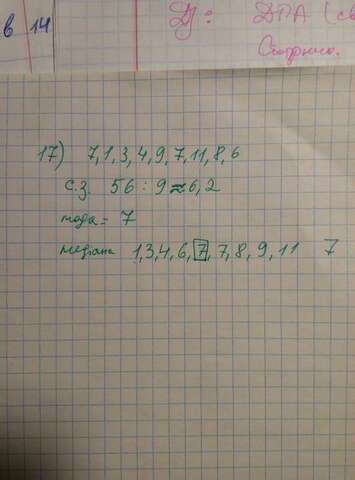 в 14
Д/з: ДРА (св
Сторінка.
17) 7,1,3,4,9,7,11,8,6
с.з. 56 : 9 ≈ 6,2
мода = 7
медіана 1,3,4,6,7,7,8,9,11 7